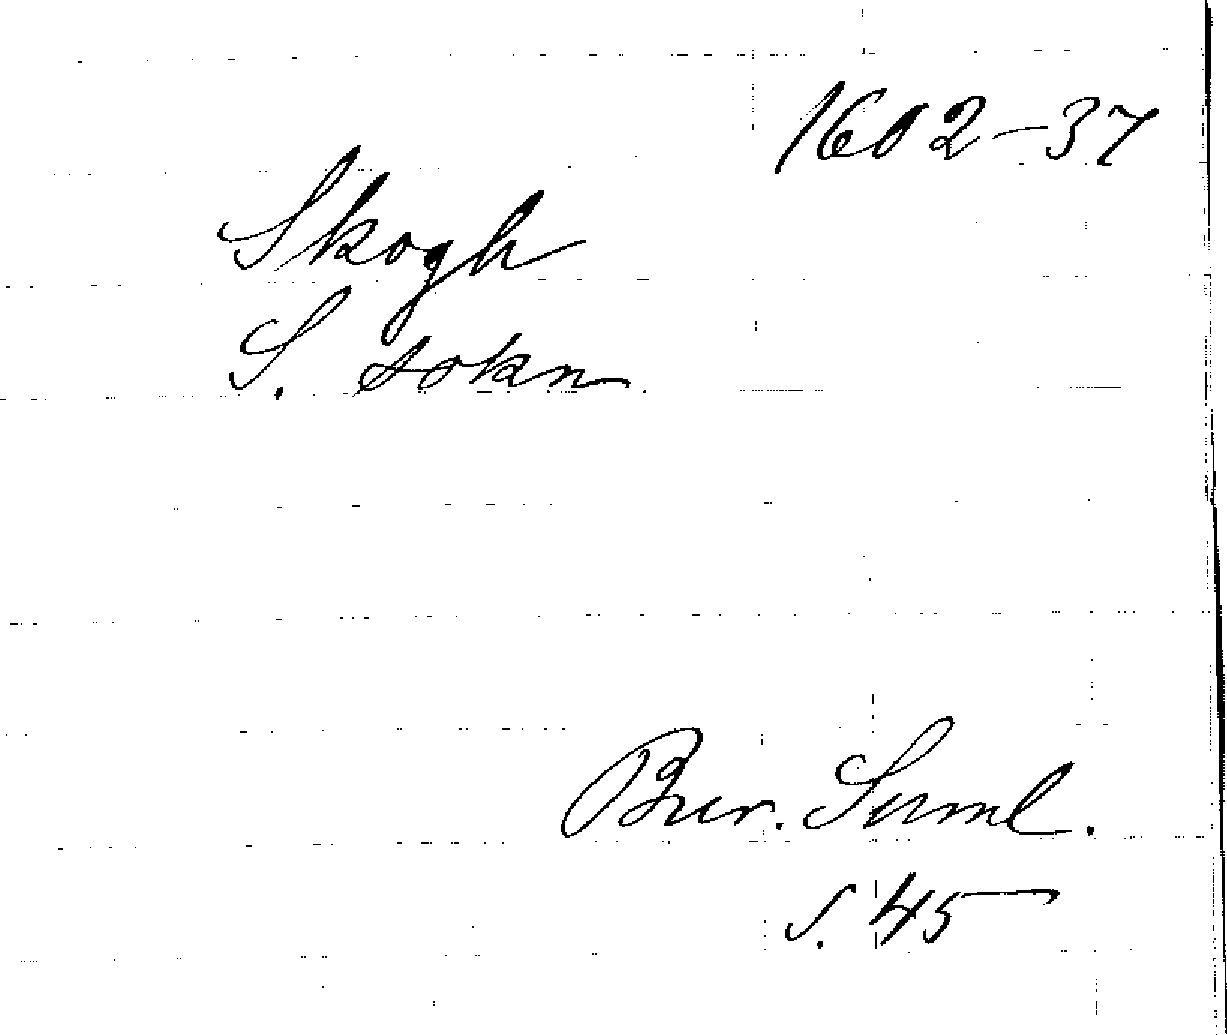 1602-37
Skogh
S. sokn
Bur. Suml.
s. 45